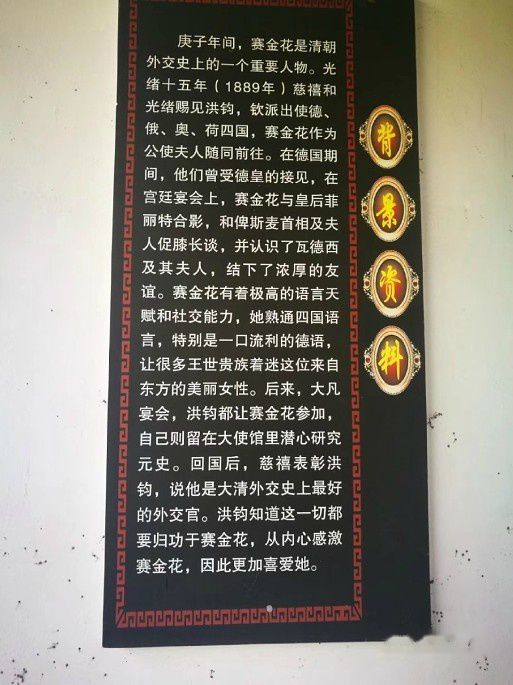 庚子年间，赛金花是清朝
外交史上的一个重要人物。光
绪十五年（1889年）慈禧和
光绪赐见洪钧，钦派出使德、
俄、奥、荷四国，赛金花作为
公使夫人随同前往。在德国期
间，他们曾受德皇的接见，在
宫廷宴会上，赛金花与皇后菲
丽特合影，和俾斯麦首相及夫
人促膝长谈，并认识了瓦德西
及其夫人，结下了浓厚的友
谊。赛金花有着极高的语言天
赋和社交能力，她熟通四国语
言，特别是一口流利的德语，
让很多王世贵族着迷这位来自
东方的美丽女性。后来，大凡
宴会，洪钧都让赛金花参加，
自己则留在大使馆里潜心研究
元史。回国后，慈禧表彰洪
钧，说他是大清外交史上最好
的外交官。洪钧知道这一切都
要归功于赛金花，从内心感激
赛金花，因此更加喜爱她。
背景资料